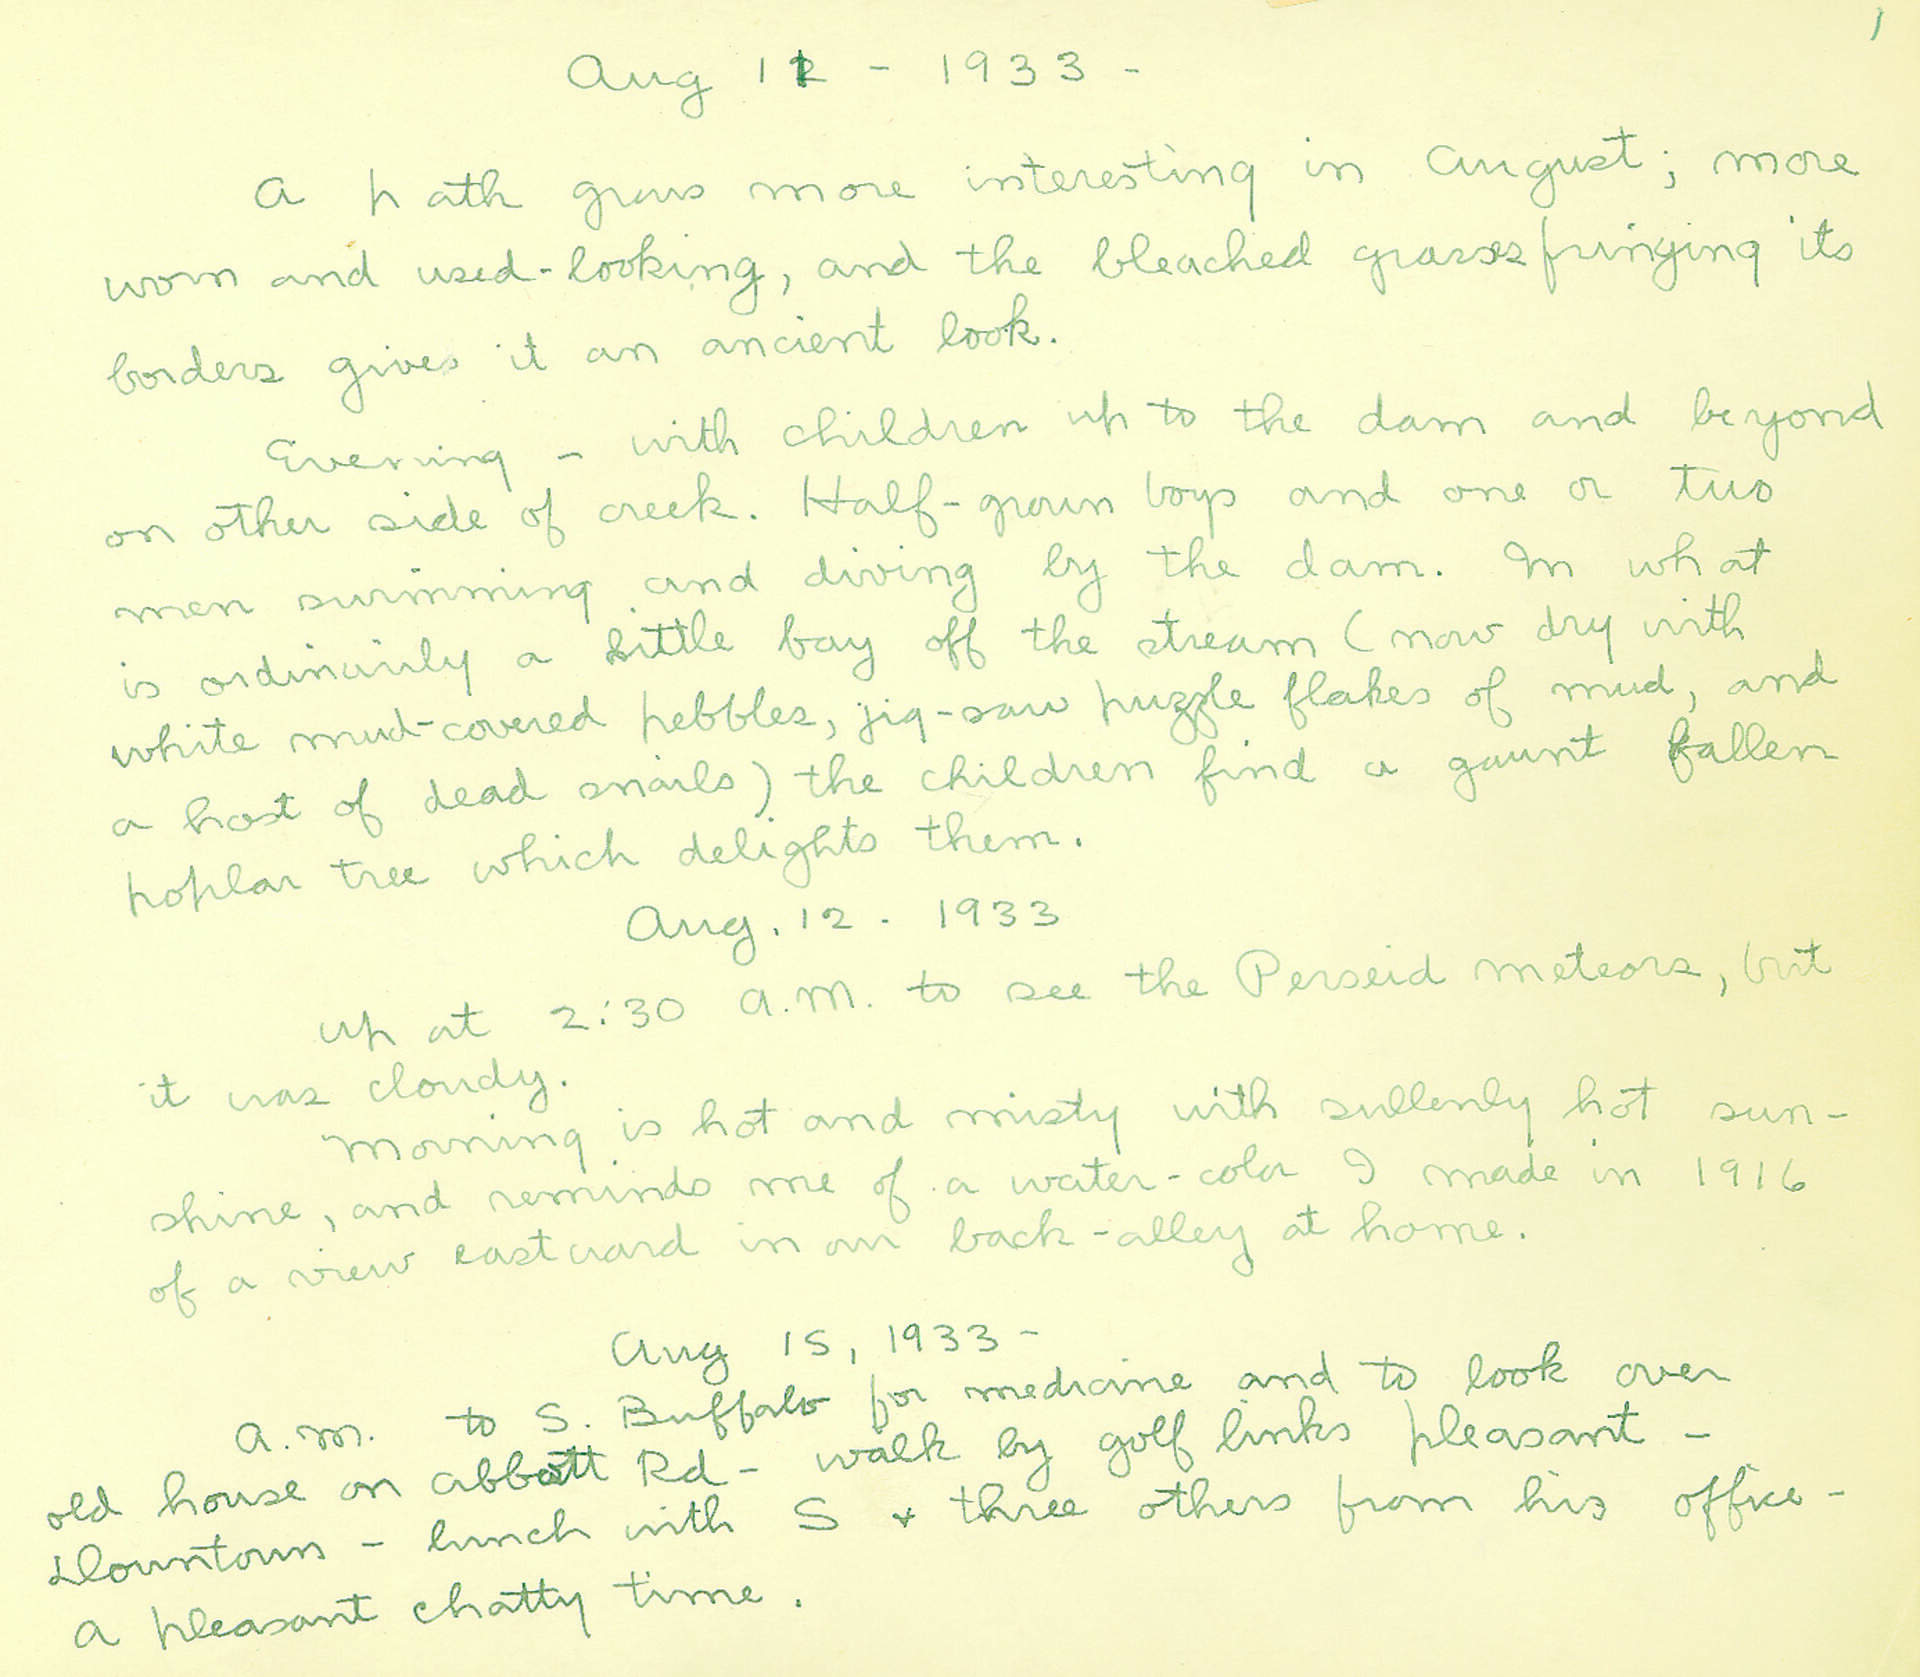 1
Aug 11 - 1933 -
A path grows more interesting in August; more
worn and used-looking, and the bleached grasses fringing its
borders gives it an ancient look.
Evening - with children up to the dam and beyond
on other side of creek. Half-grown boys and one or two
men swimming and diving by the dam. In what
is ordinarily a little bay off the stream (now dry with
white mud-covered pebbles, jig-saw puzzle flakes of mud, and
a host of dead snails) the children find a gaunt fallen
poplar tree which delights them.
Aug. 12 - 1933
Up at 2:30 A.M. to see the Perseid meteors, but
it was cloudy.
Morning is hot and misty with sullenly hot sun-
shine, and reminds me of a water-color I made in 1916
of a view eastward in our back-alley at home.
Aug 15, 1933 -
A.M. to S. Buffalo for medicine and to look over
old house on Abbott Rd - walk by golf links pleasant -
Downtown - lunch with S + three others from his office -
a pleasant chatty time.